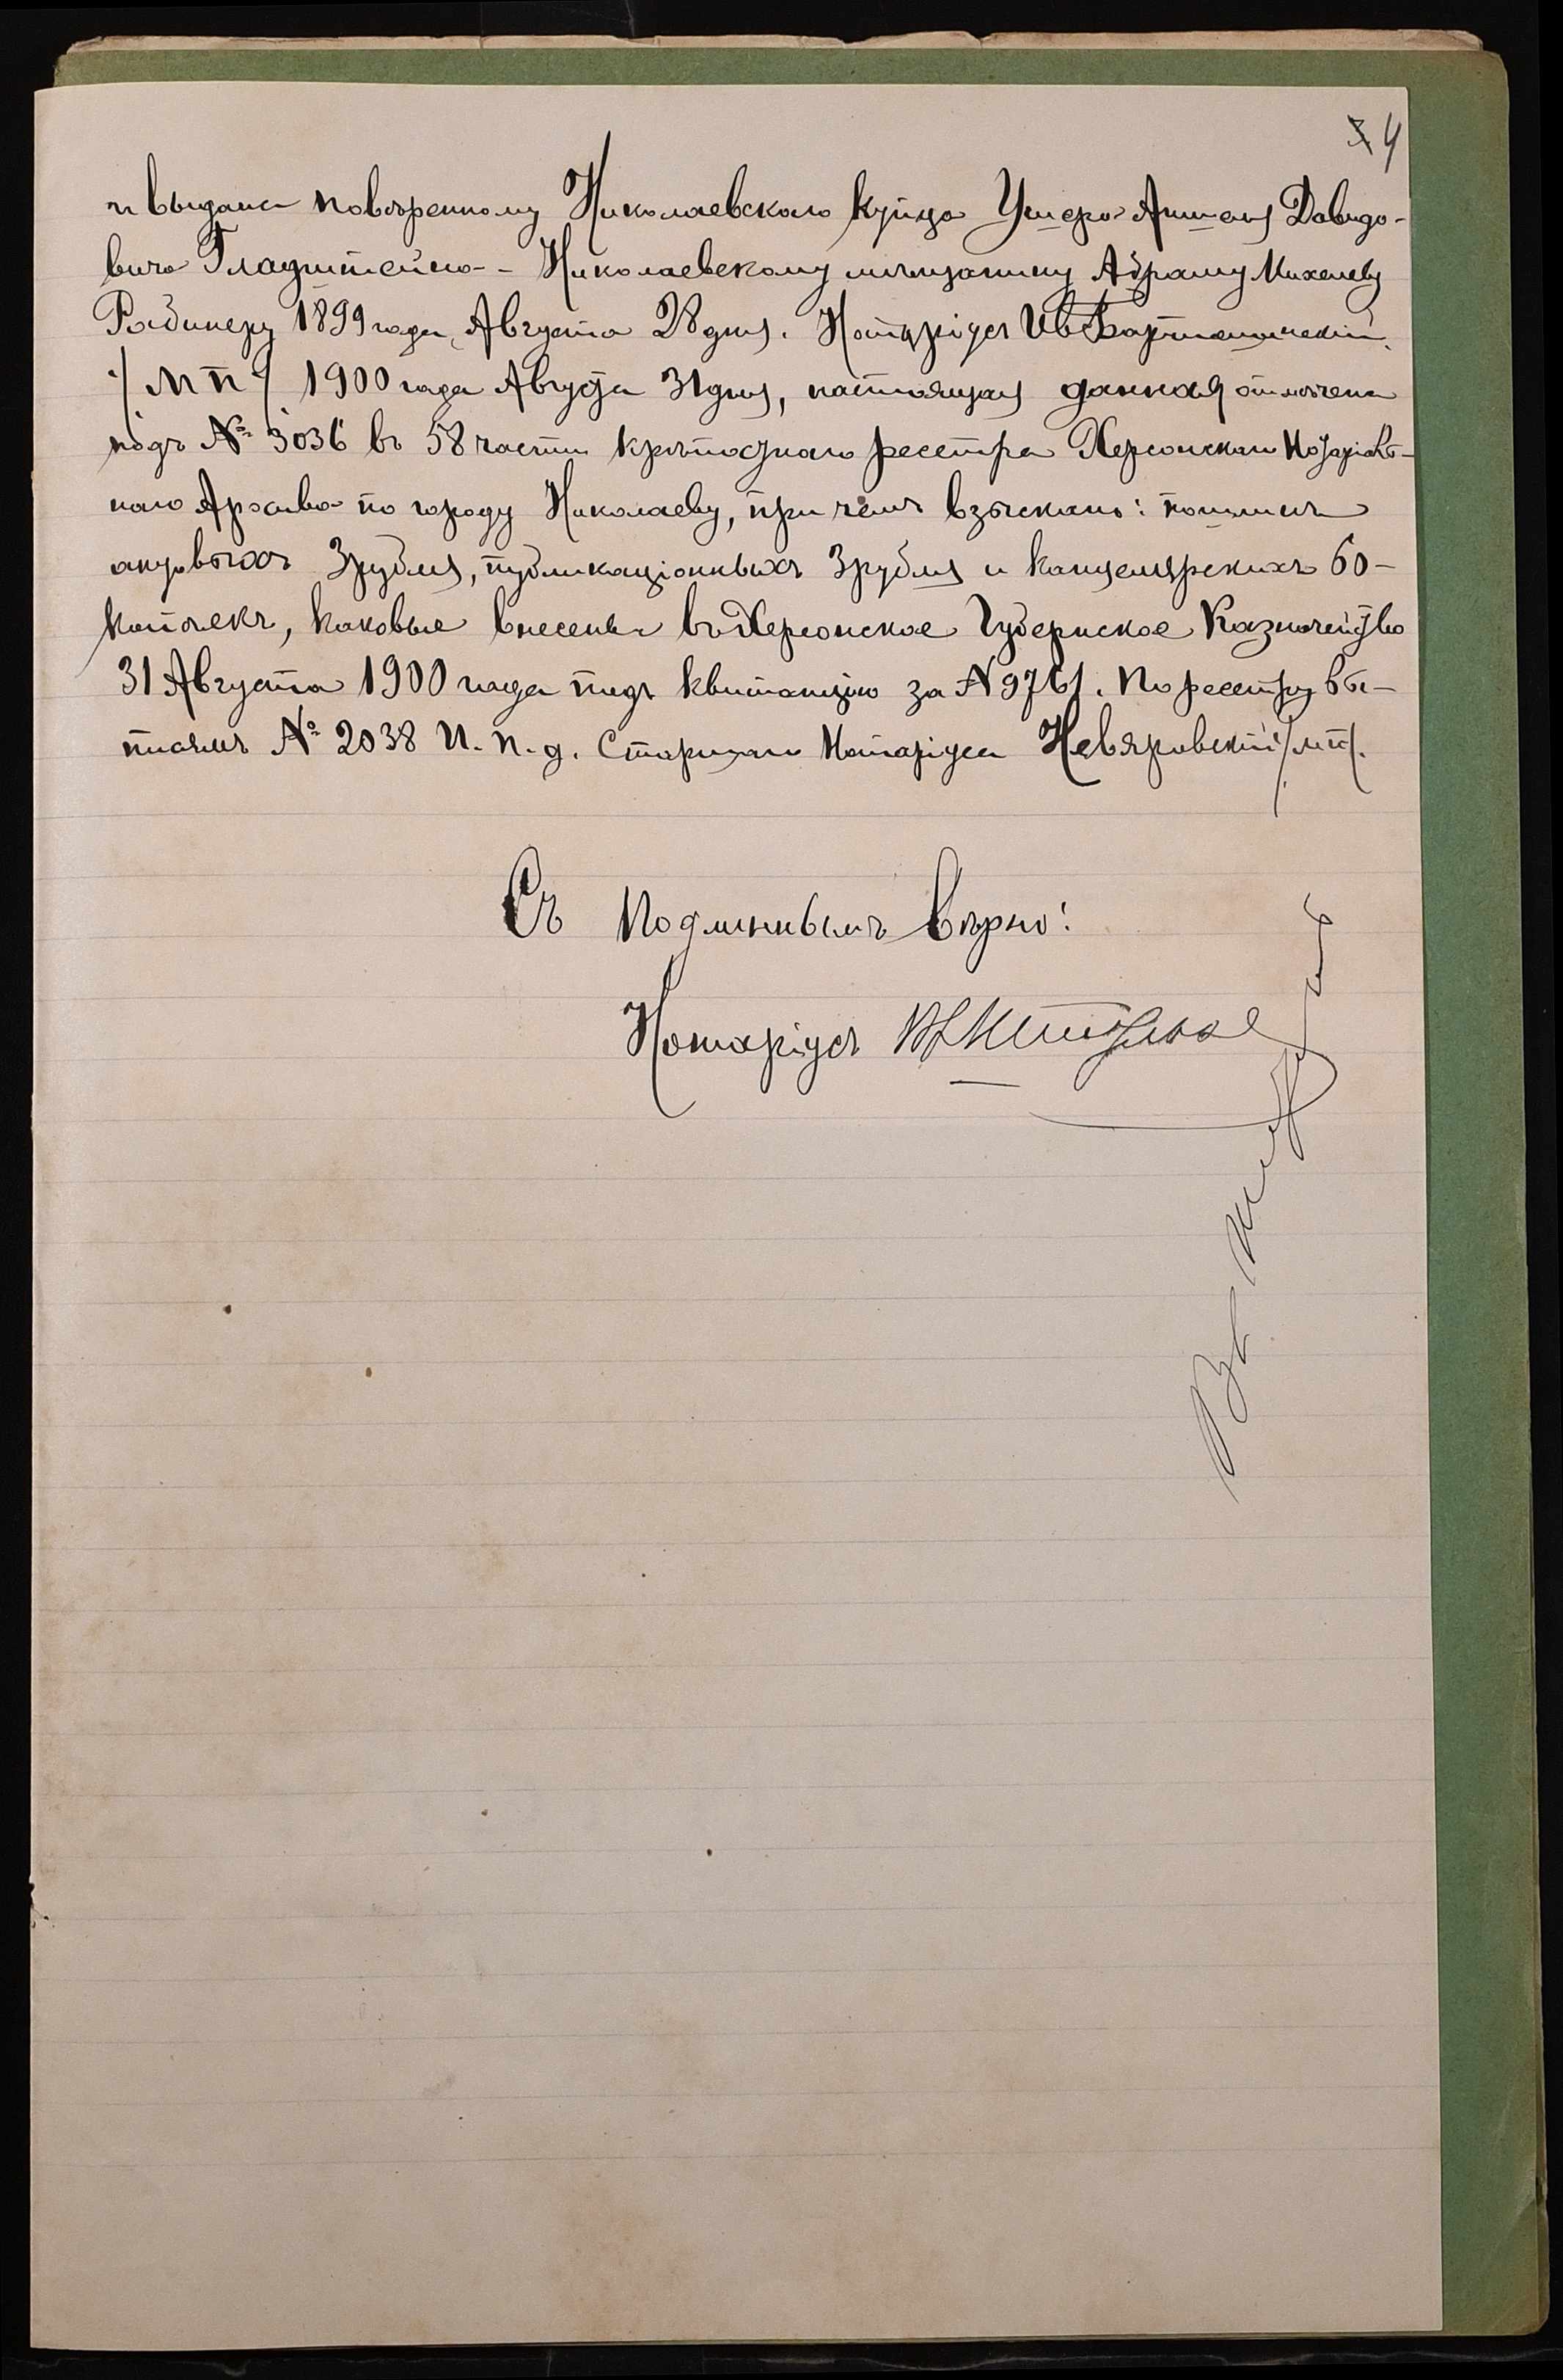 4
и выдана повѣренному Николаевскаго купца Ушера Аншеля Давидо-
вича Гладштейна - Николаевскому мѣщанину Абраму Михелеву
Рабинеру 1899 года, Августа 28 дня. Нотаріусъ Ив
/М П/ 1900 года Августа 31 дня, настоящая данная отмѣчена
подъ № 3036 въ 58 части крѣпостнаго реестра Херсонскаго Нотаріаль-
наго Архива по городу Николаеву, при чемъ взыскано: пошлинъ
актовыхъ 3 рубля, публикаціонныхъ 3 рубля и канцелярскихъ 60-
копѣекъ, каковые внесены въ Херсонское Губернское Казначейство
31 Августа 1900 года подъ квитанцію за № 9761. По реестру вы-
писямъ № 2038 И. п. д. Старшаго Нотаріуса Невяровскій /мп/.
Съ подлиннымъ вѣрно:
Нотаріусъ